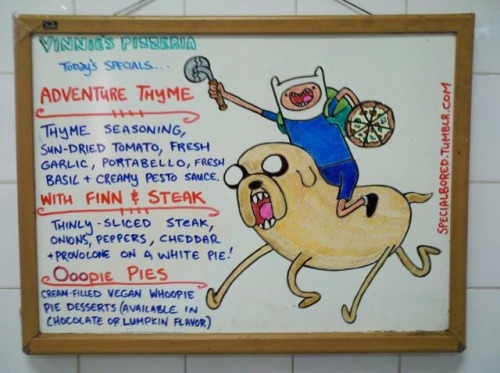 VINNIE'S PIZZERIA
TODAY'S SPECIALS...
ADVENTURE THYME
THYME SEASONING,
SUN-DRIED TOMATO, FRESH
GARLIC, PORTABELLO, FRESH
BASIL + CREAMY PESTO SAUCE.
WITH FINN & STEAK
THINLY-SLICED STEAK,
ONIONS, PEPPERS, CHEDDAR
+ PROVOLONE ON A WHITE PIE!
OOOPIE PIES
CREAM-FILLED VEGAN WHOOPIE
PIE DESSERTS (AVAILABLE IN
CHOCOLATE OR LUMPKIN FLAVOR)
SPECIALBORED.TUMBLR.COM